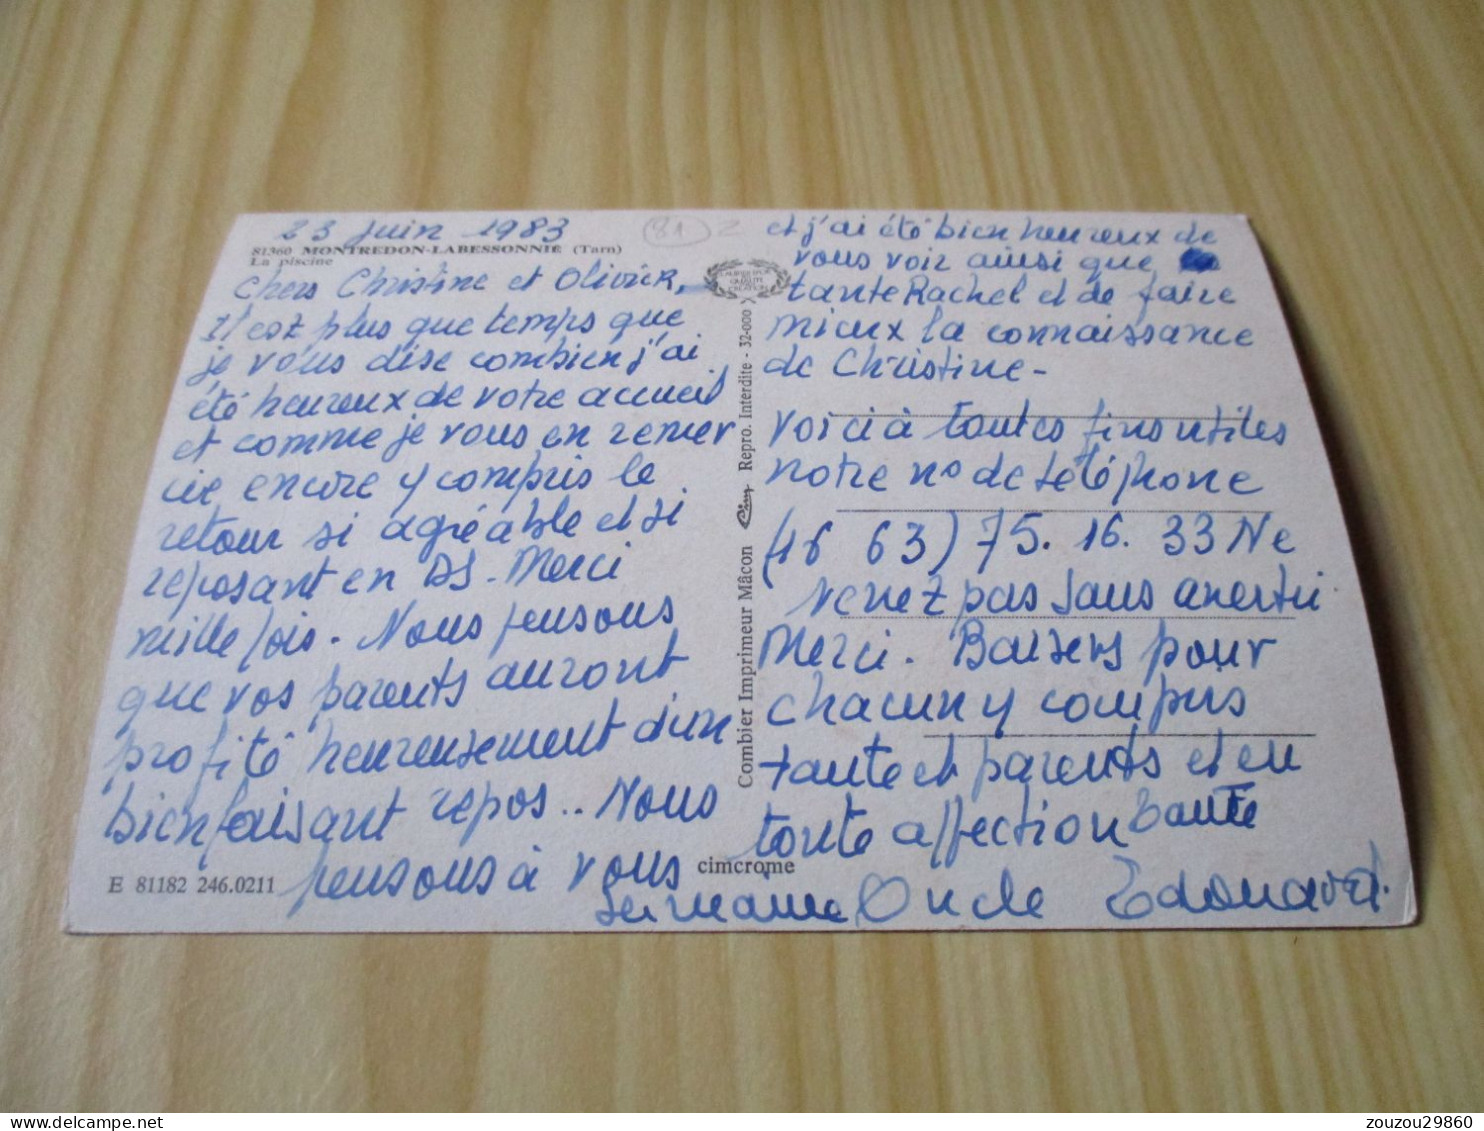 23 juin 1983
81360 MONTREDON-LABESSONNIE (Tarn)
La piscine
Chers Christine et Olivier,
Il est plus que temps que
je vous dise combien j'ai
été heureux de votre accueil
et comme je vous en remer
cie encore y compris le
retour si agréable et si
reposant en DS. Merci
mille fois. Nous pensons
que vos parents auront
profité heureusement d'un
bienfaisant repos.. Nous
pensons à vous
E 81182 246.0211
81
Combier Imprimeur Mâcon Cim Repro. Interdite - 32-000
cimcrome
et j'ai été bien heureux de
vous voir ainsi que
tante Rachel et de faire
mieux la connaissance
de Christine -
Voici à toutes fins utiles
notre n° de téléphone
(16 63) 75. 16. 33 Ne
venez pas sans avertir
Merci. Baisers pour
chacun y compris
tante et parents et en
toute affection Tante
Germaine Oncle Edouard.
zouzou29860